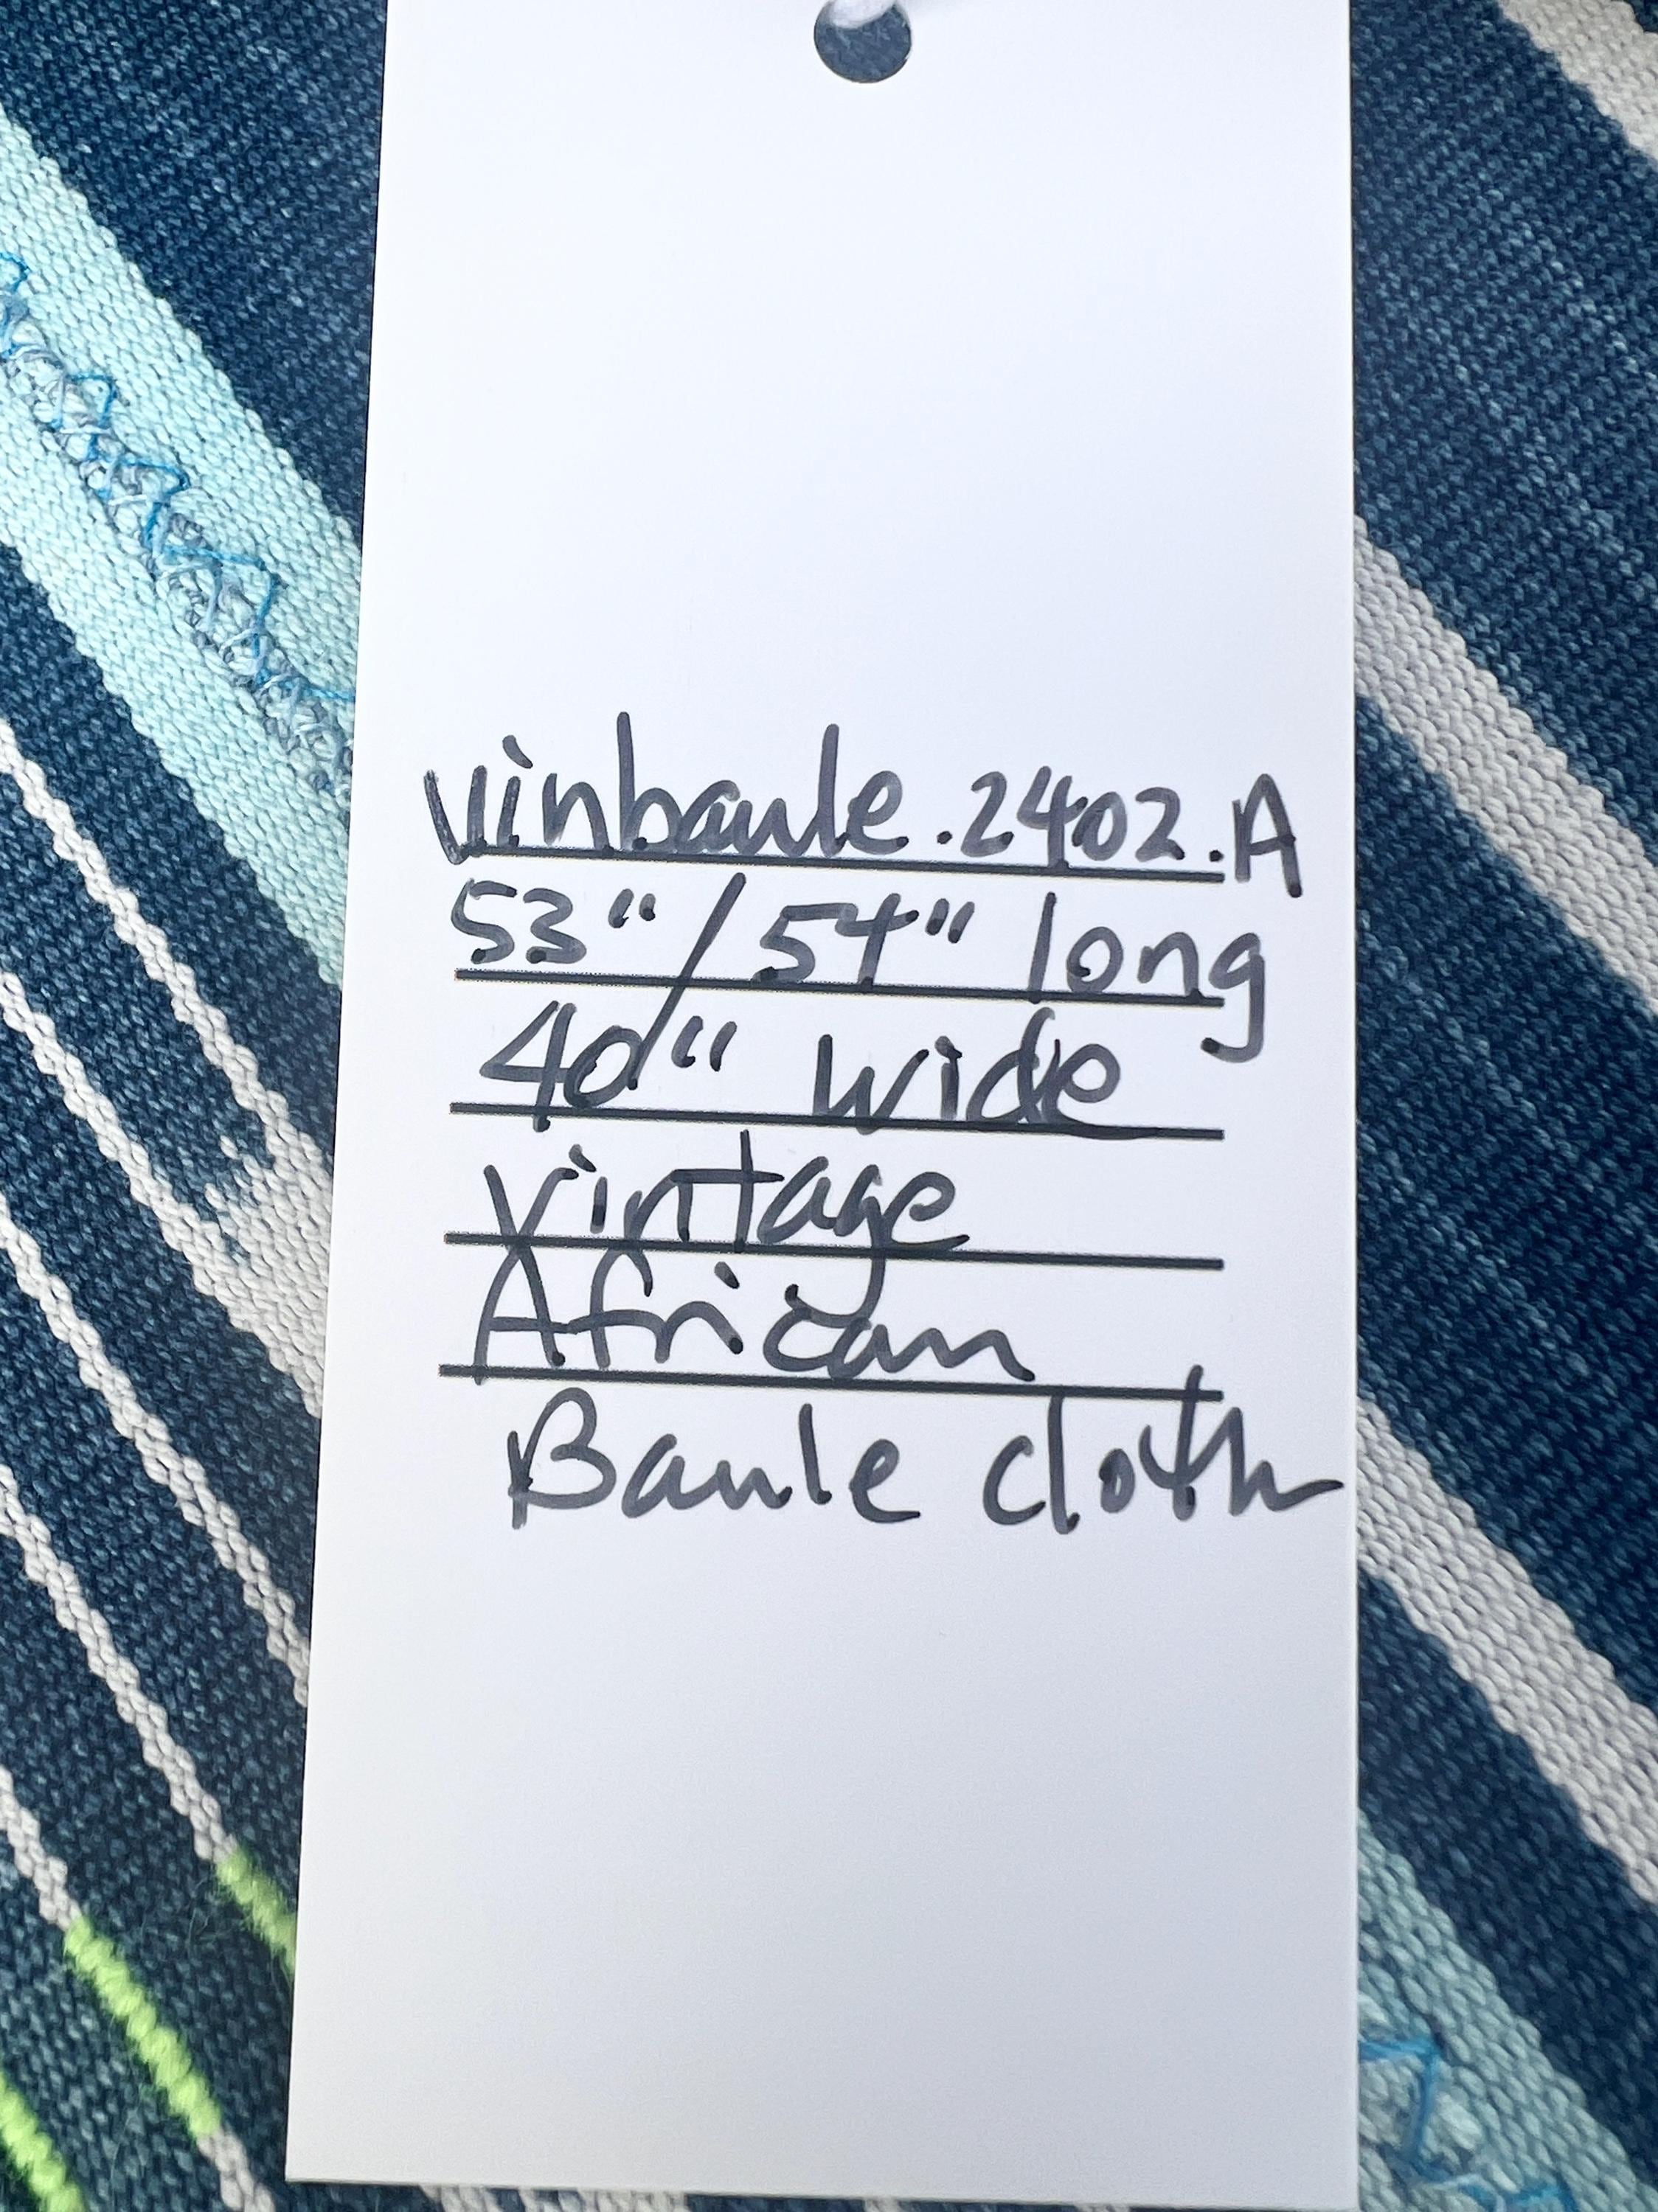 vinbaule.2402.A
53"/54" long
40" wide
Vintage
African
Baule cloth